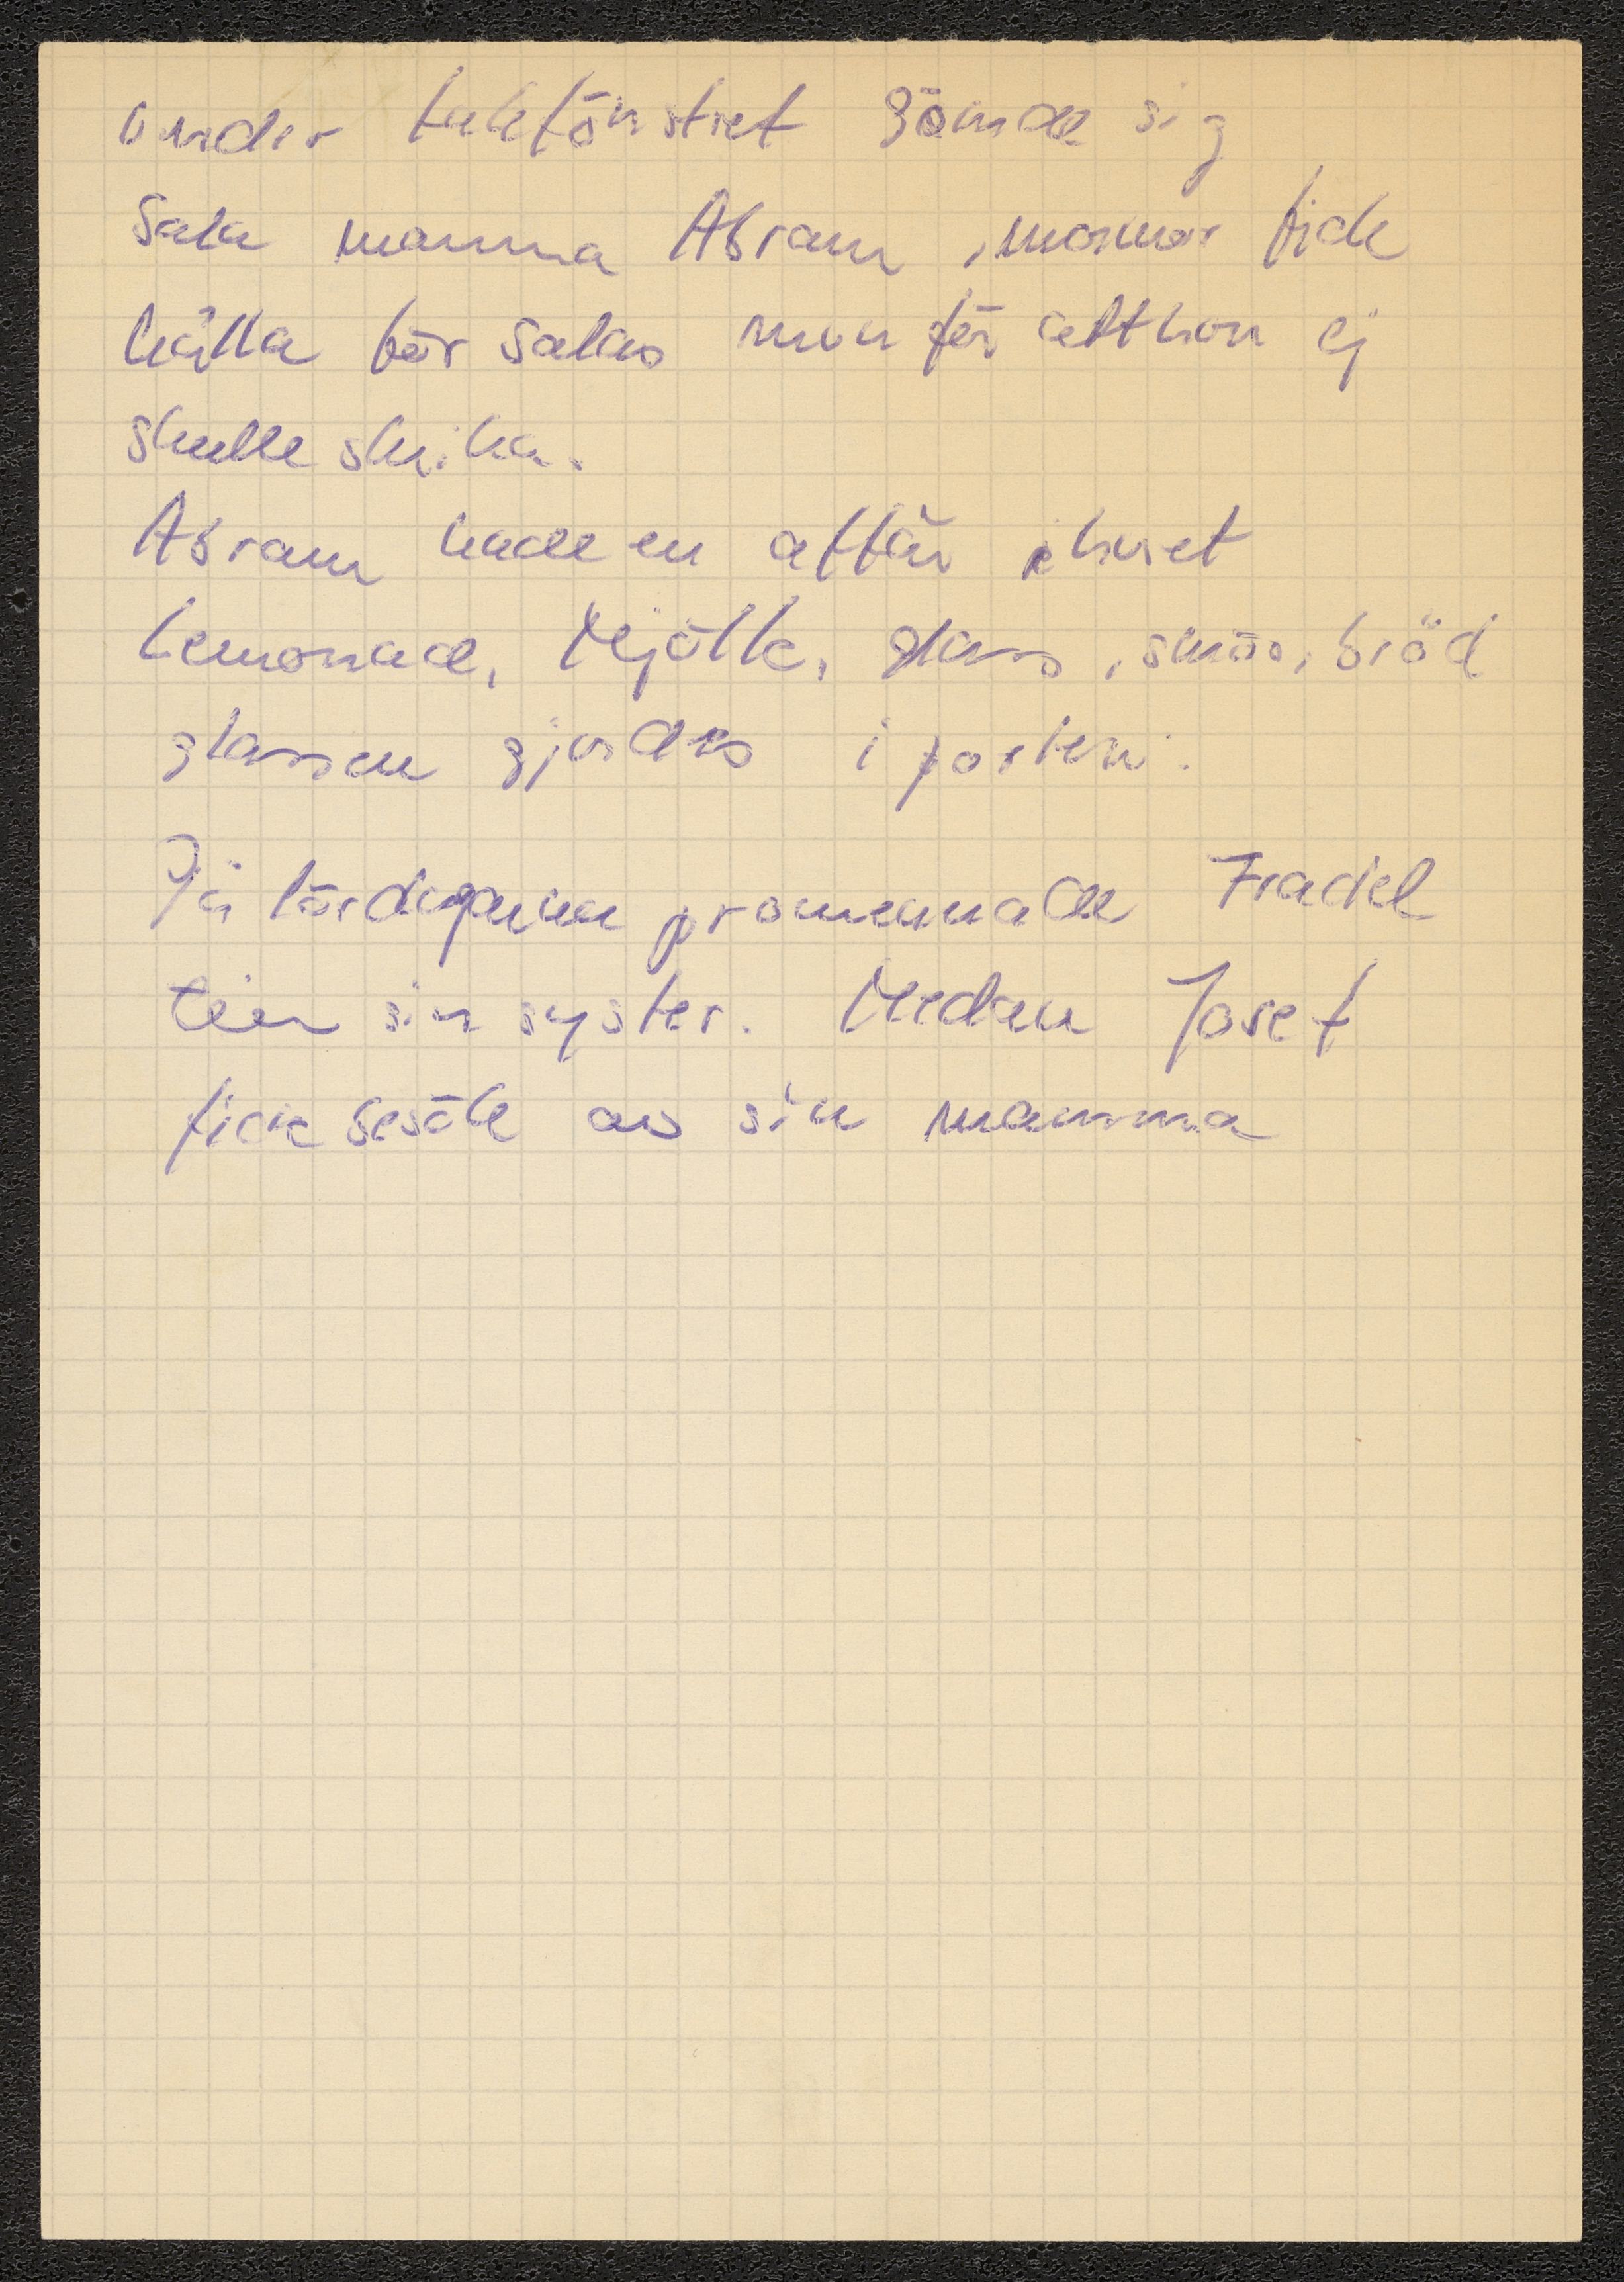 under takfönstret gömde sig
Sala mamma Abram, mormor fick
hålla för Salas mun för att hon ej
skulle skrika.
Abram hade en affär i huset
Lemonade, Mjölk, glass, smör, bröd
glassen gjordes i porten.
På lördagarna promenade Fradel
till sin syster. Medan Josef
fick besök av sin mamma